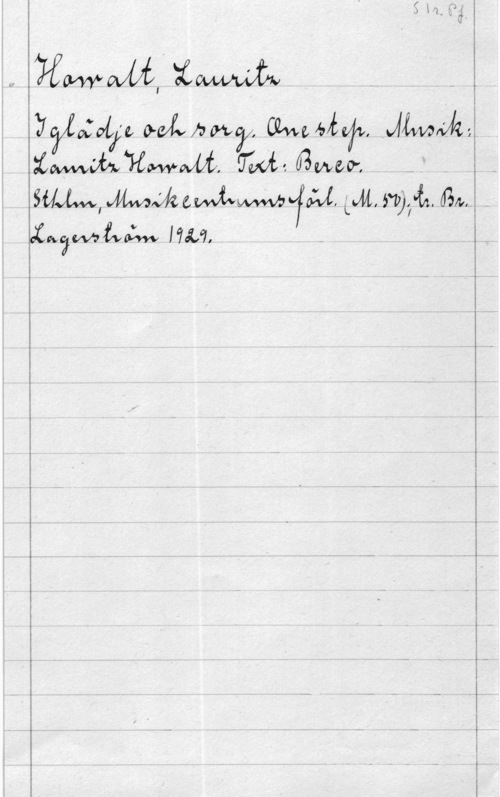 S 1 r. Pf.
Howalt, Lauritz
I glädje och sorg. One step. Musik:
Lauritz Howalt. Text: Berco.
Sthlm, Musikcentrumsförl. (M. 50), tr. Br.
Lagerström 1929.